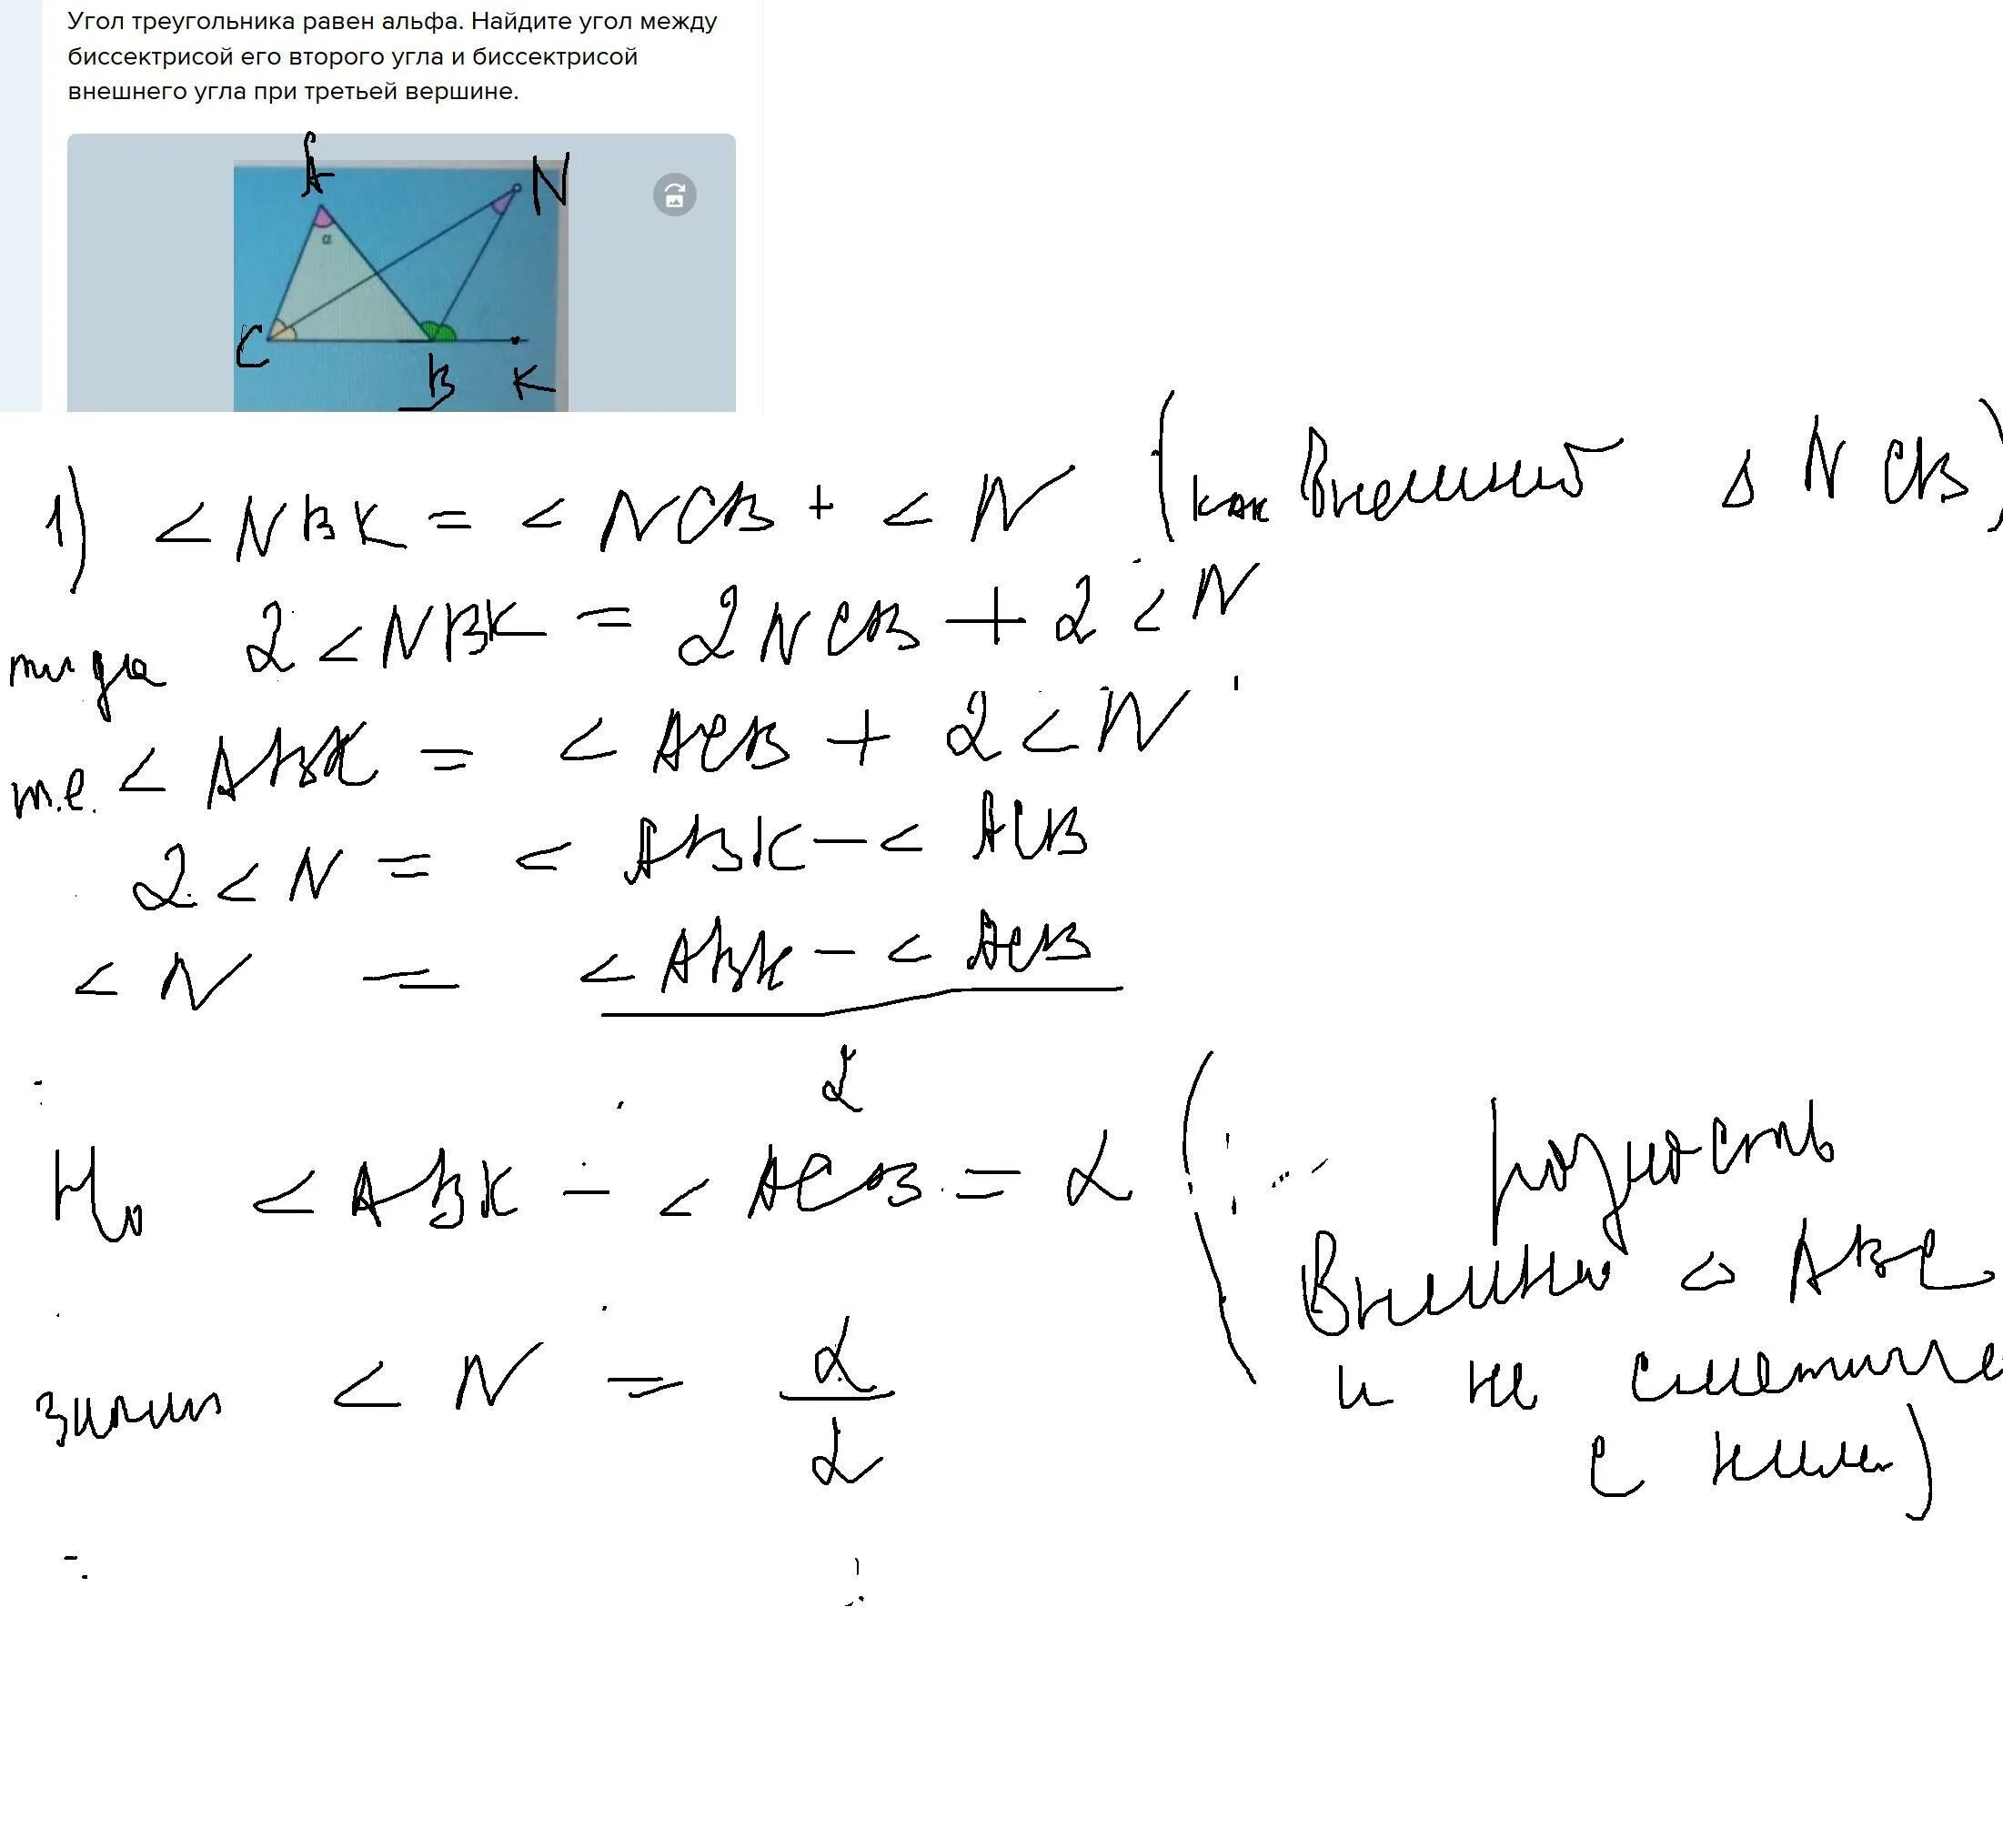 Угол треугольника равен альфа. Найдите угол между
биссектрисой его второго угла и биссектрисой
внешнего угла при третьей вершине.
A
N
α
C
B
K
1) < NBK = < NCB + < N (как внешний Δ NCB)
тогда 2 < NBK = 2 NCB + 2 < N
т.е. < ABK = < ACB + 2 < N
2 < N = < ABK – < ACB
< N = < ABK – < ACB
2
Но < ABK – < ACB = α ( разность
внешнего < ABC
и не смежного
с ним)
значит < N = α
2